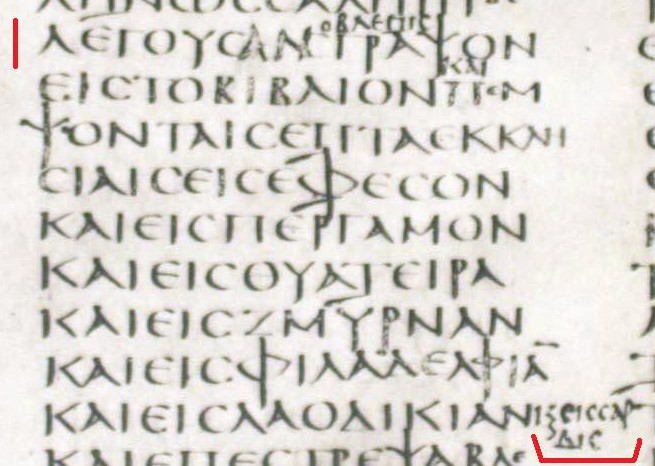 ο βλεπιϲ
ΛΕΓΟΥϹΑΝΓΡΑΨΟΝ
και
ΕΙϹΤΟΒΙΒΛΙΟΝΠΕΜ
ΨΟΝΤΑΙϹΕΠΤΑΕΚΚΛΗ
ϹΙΑΙϹΕΙϹΕΦΕϹΟΝ
ΚΑΙΕΙϹΠΕΡΓΑΜΟΝ
ΚΑΙΕΙϹΘΥΑΤΕΙΡΑ
ΚΑΙΕΙϹΖΜΥΡΝΑΝ
ΚΑΙΕΙϹΦΙΛΑΔΕΛΦΙΑ̅
ΚΑΙΕΙϹΛΑΟΔΙΚΙΑΝ ϗ ειϲ ϲαρ
διϲ
ΚΑΙΕΠΕϹΤΡΕΨΑΒΛΕ